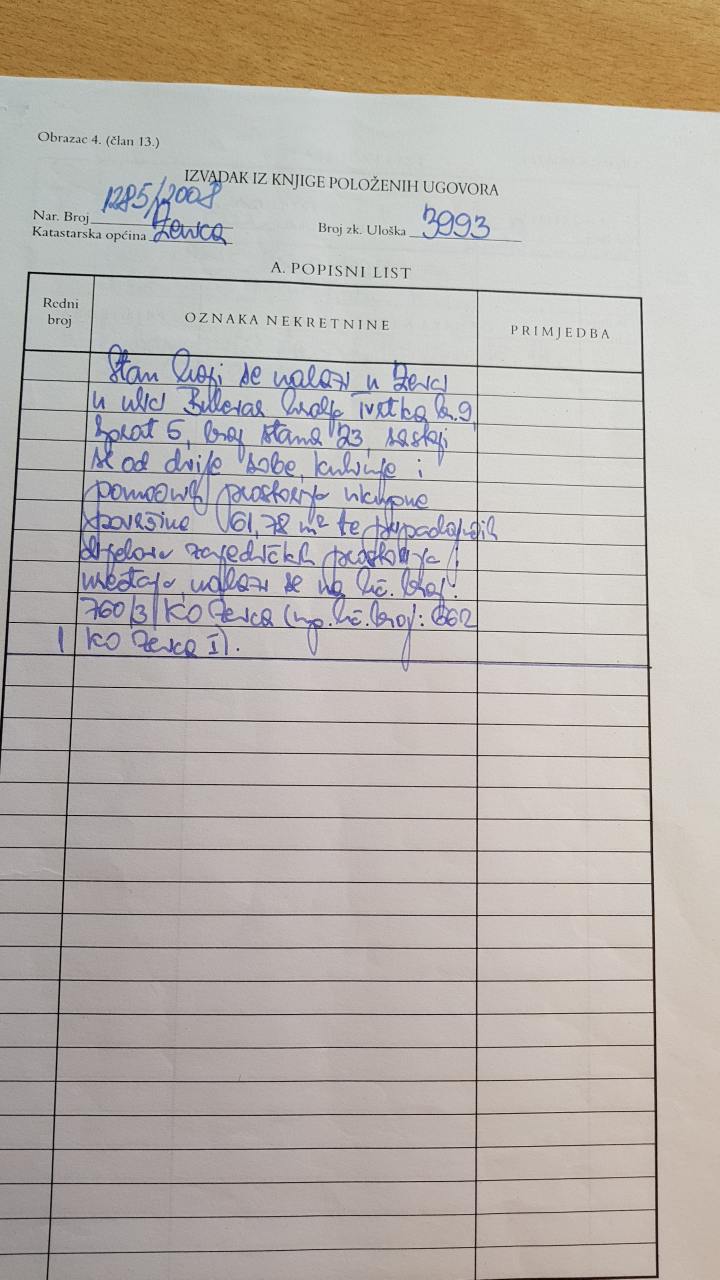 Obrazac 4. (član 13.)
IZVADAK IZ KNJIGE POLOŽENIH UGOVORA
Nar. Broj 1285/2008
Katastarska općina Zenica
Broj zk. Uloška 3993
A. POPISNI LIST
Redni broj
OZNAKA NEKRETNINE
PRIMJEDBA
Stan koji se nalazi u Zenici
u ulici Bulevar kralja Tvrtka br. 9,
sprat 5, broj stana 23, sastoji
se od dvije sobe, kuhinje i
pomoćnih prostorija ukupne
površine 61,78 m² te pripadajućih
dijelova zajedničkih prostorija i
uređaja, nalazi se na k.č. broj:
760/3 KO Zenica (np. k.č. broj: 662
1 KO Zenica I).